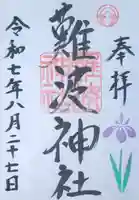 奉拝
難波神社
令和七年八月二十七日